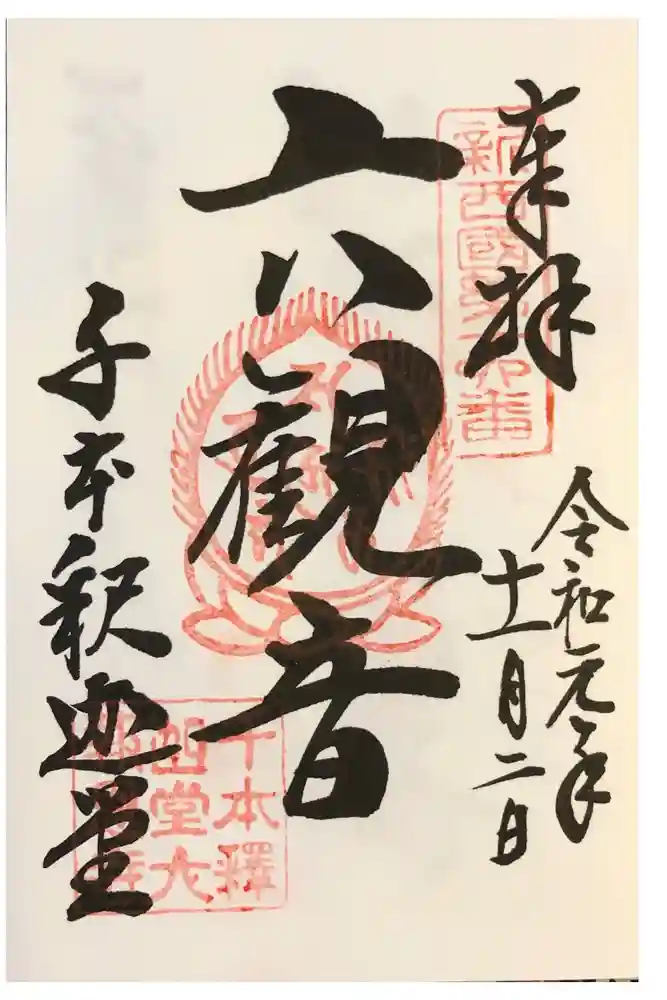 奉拝
新西國第十六番
令和元年
十一月二日
六観音
千本釈迦堂
千本釋
迦堂大
報恩寺